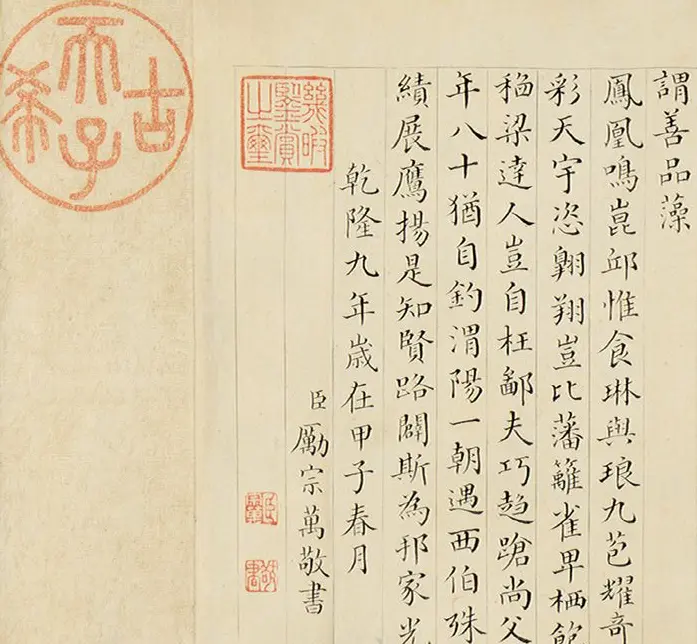 謂善品藻
鳳凰鳴崑邱惟食琳與琅九苞耀奇
彩天宇恣翺翔豈比藩籬雀卑栖飽
稻粱達人豈自枉鄙夫巧趨蹌尚父
年八十猶自釣渭陽一朝遇西伯殊
績展鷹揚是知賢路闢斯為邦家光
乾隆九年歲在甲子春月
臣勵宗萬敬書
幾暇鑒賞之璽
敬書
古希天子